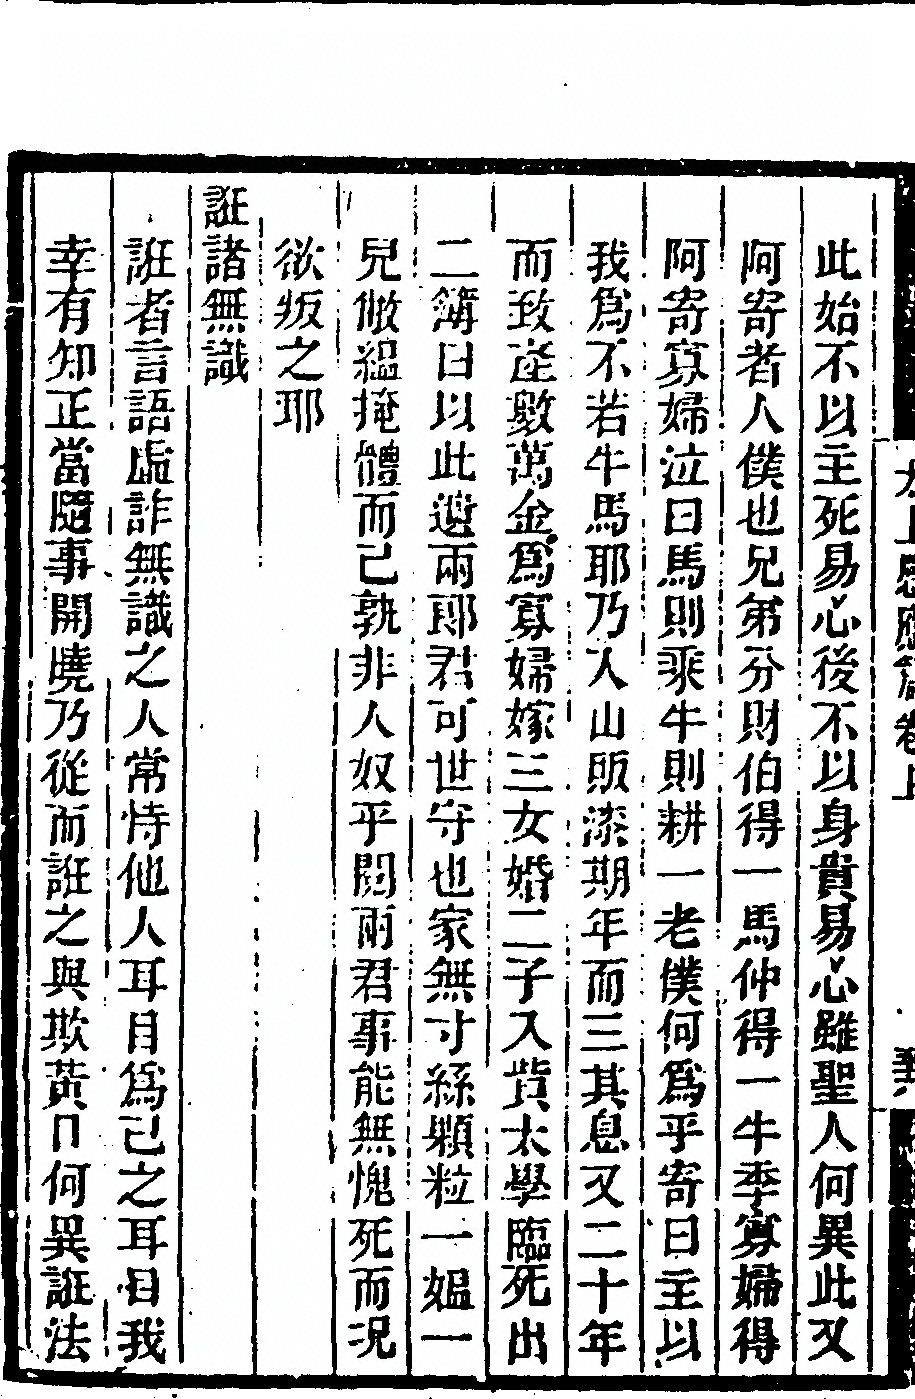 太上感應篇卷上
此始不以主死易心後不以身貴易心雖聖人何異此又
阿寄者人僕也兄弟分財伯得一馬仲得一牛季寡婦得
阿寄寡婦泣曰馬則乘牛則耕一老僕何爲乎寄曰主以
我爲不若牛馬耶乃入山販漆期年而三其息又二十年
而致產數萬金爲寡婦嫁三女婚二子入貲太學臨死出
二簿曰以此遺兩郎君可世守也家無寸絲顆粒一媼一
兒敝縕掩體而已孰非人奴乎閱兩君事能無愧死而况
欲叛之耶
誑諸無識
誑者言語虛詐無識之人常恃他人耳目爲己之耳目我
幸有知正當隨事開曉乃從而誑之與欺黃口何異誑法